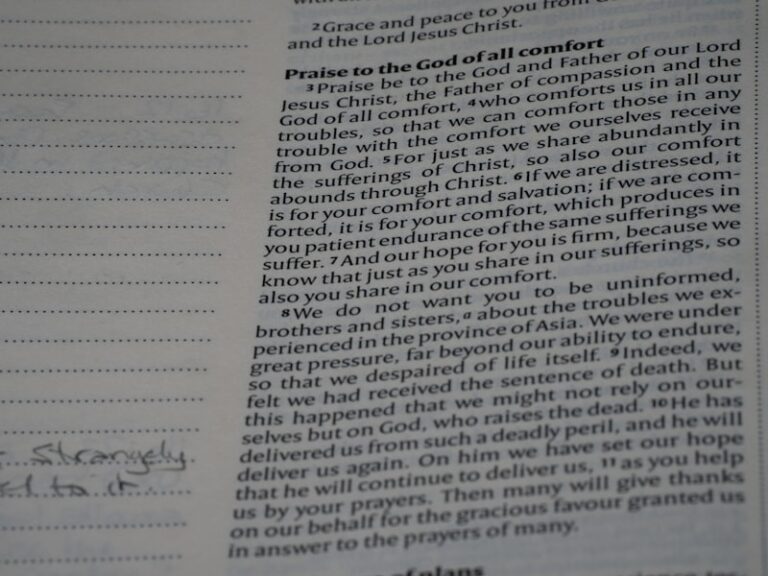 2 Grace and peace to you from
and the Lord Jesus Christ.
Praise to the God of all comfort
3 Praise be to the God and Father of our Lord
Jesus Christ, the Father of compassion and the
God of all comfort, 4 who comforts us in all our
troubles, so that we can comfort those in any
trouble with the comfort we ourselves receive
from God. 5 For just as we share abundantly in
the sufferings of Christ, so also our comfort
abounds through Christ. 6 If we are distressed, it
is for your comfort and salvation; if we are com-
forted, it is for your comfort, which produces in
you patient endurance of the same sufferings we
suffer. 7 And our hope for you is firm, because we
know that just as you share in our sufferings, so
also you share in our comfort.
8 We do not want you to be uninformed,
brothers and sisters, a about the troubles we ex-
perienced in the province of Asia. We were under
great pressure, far beyond our ability to endure,
so that we despaired of life itself. 9 Indeed, we
felt we had received the sentence of death. But
this happened that we might not rely on our-
selves but on God, who raises the dead. 10 He has
delivered us from such a deadly peril, and he will
deliver us again. On him we have set our hope
that he will continue to deliver us, 11 as you help
us by your prayers. Then many will give thanks
on our behalf for the gracious favour granted us
in answer to the prayers of many.
of plans
Strangely
to it.